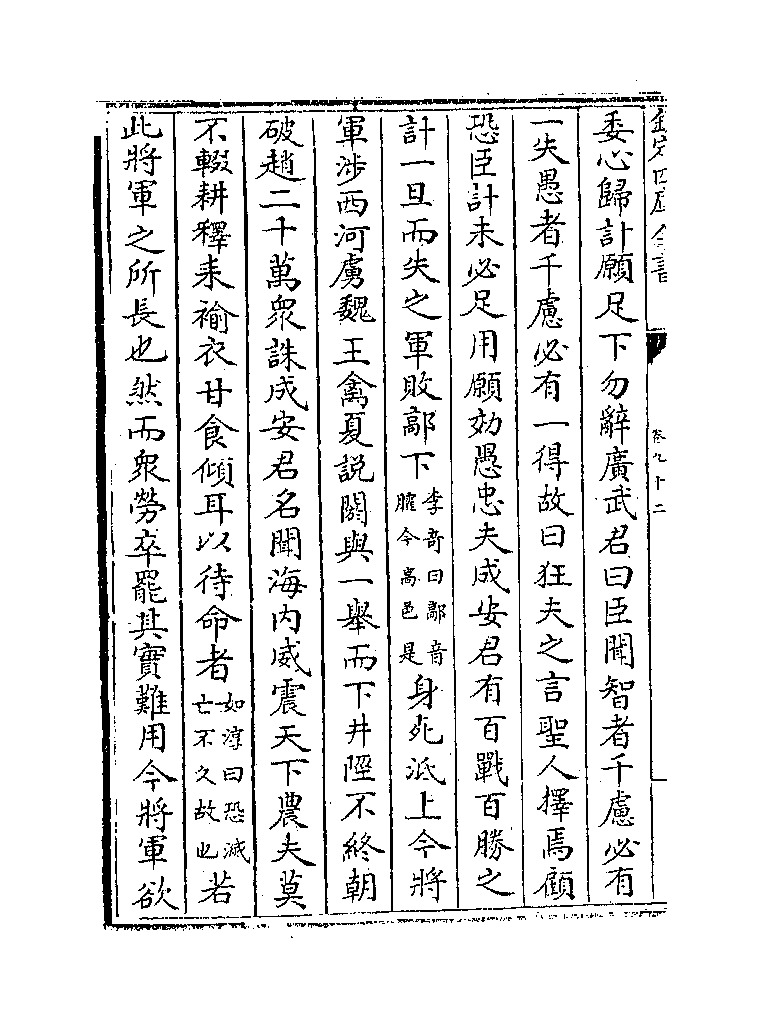 欽定四庫全書
卷九十二
委心歸計願足下勿辭廣武君曰臣聞智者千慮必有
一失愚者千慮必有一得故曰狂夫之言聖人擇焉顧
恐臣計未必足用願効愚忠夫成安君有百戰百勝之
計一旦而失之軍敗鄗下李竒曰鄗音臛今高邑是身死泜上今將
軍涉西河虜魏王禽夏説閼與一舉而下井陘不終朝
破趙二十萬衆誅成安君名聞海内威震天下農夫莫
不輟耕釋耒褕衣甘食傾耳以待命者如淳曰恐滅亡不久故也若
此將軍之所長也然而衆勞卒罷其實難用今將軍欲